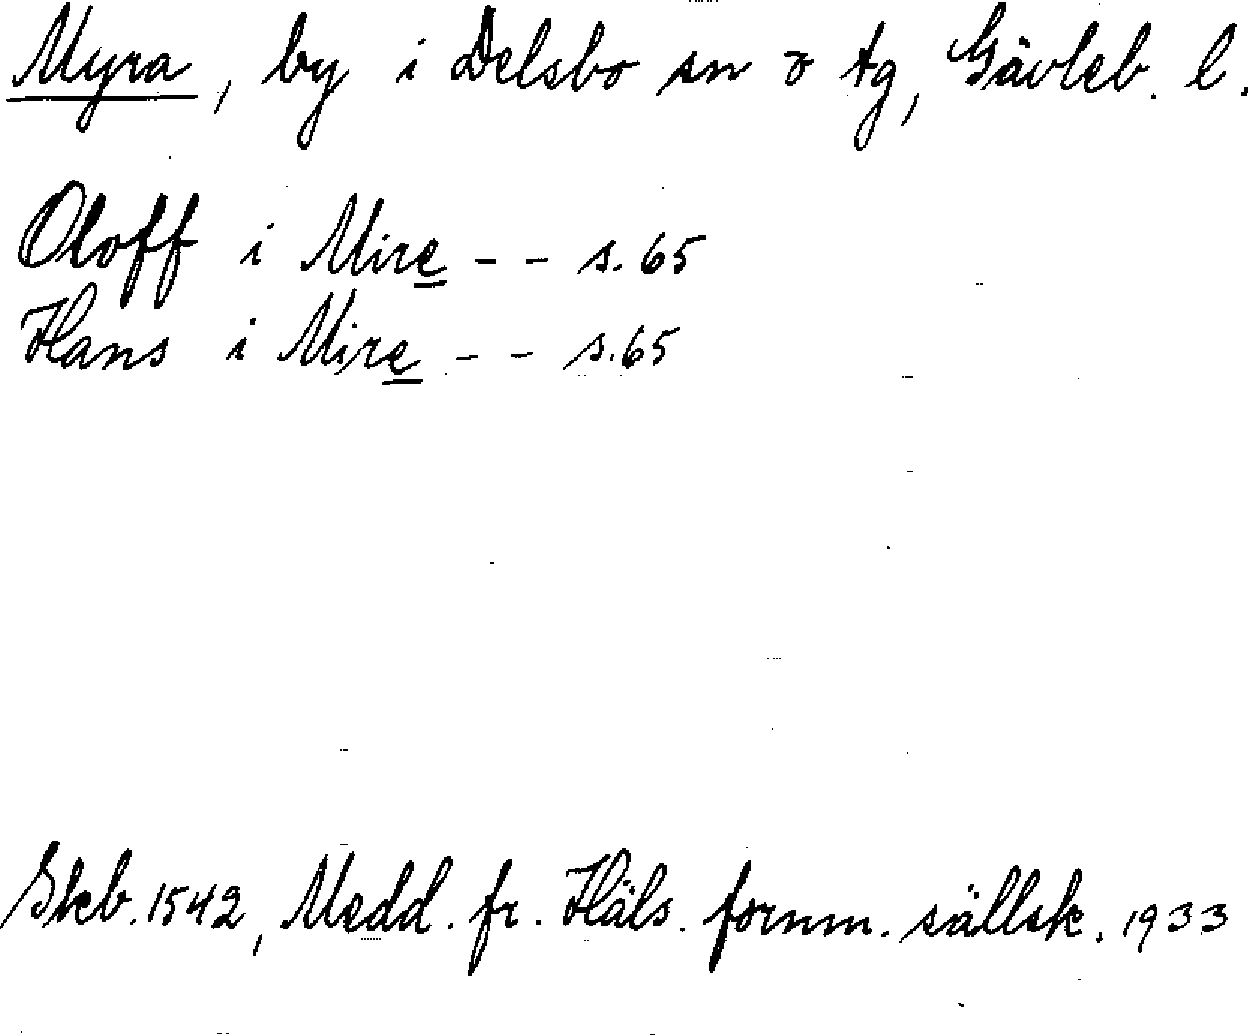 Myra, by i Delsbo sn o tg, Gävleb. l.
Oloff i Mire - - s. 65
Hans i Mire - - s. 65
Skb. 1542, Medd. fr. Häls. fornm. sällsk. 1933